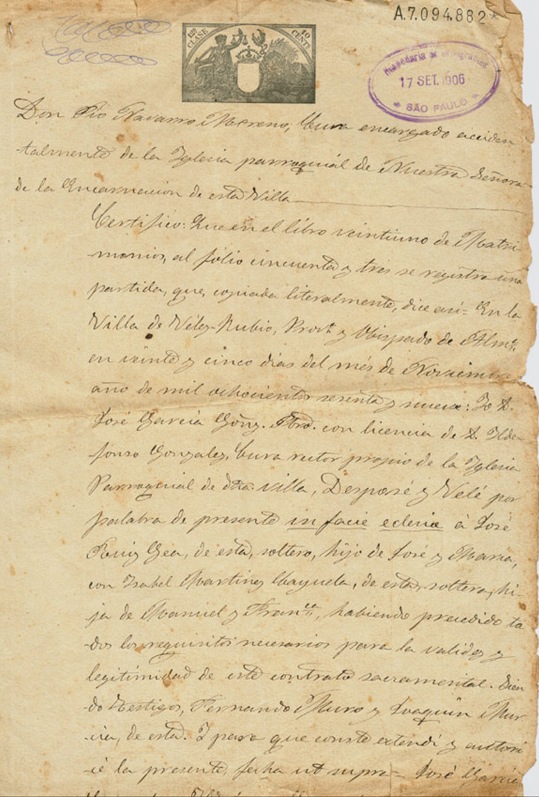 A.7.094.882*
12ª CLASE
10 CENTS
Hospedaria de Immigrantes
17 SET. 1906
SÃO PAULO
Don Pio Navarro Moreno, Cura encargado acciden
talmente de la Iglesia parroquial de Nuestra Señora
de la Encarnacion de esta Villa
Certifico: Que en el libro veintiuno de Matri
monios, al folio cincuenta y tres se registra una
partida, que, copiada literalmente, dice asi = En la
Villa de Velez-Rubio, Provª y Obispado de Almª
en veinte y cinco dias del més de Noviembre
año de mil ochocientos sesenta y nueve: Yo D.
José Garcia Gonz. Pbro. con licencia de D. Ilde
fonso Gonzalez, Cura rector propio de la Iglesia
Parroquial de dha villa, Desposé y Velé por
palabra de presente in facie eclecie à José
Ruiz Gea, de esta, soltero, hijo de José y Maria,
con Isabel Martinez, de esta, soltera, hi
ja de Manuel y Franca, habiendo precedido to
dos los requisitos necesarios para la validez y
legitimidad de este contrato sacramental. Sien
do testigos, Fernando Muro y Joaquin Mur
cia, de esta. I para que conste extendi y autori
cé la presente, fecha ut supra = José Garcia